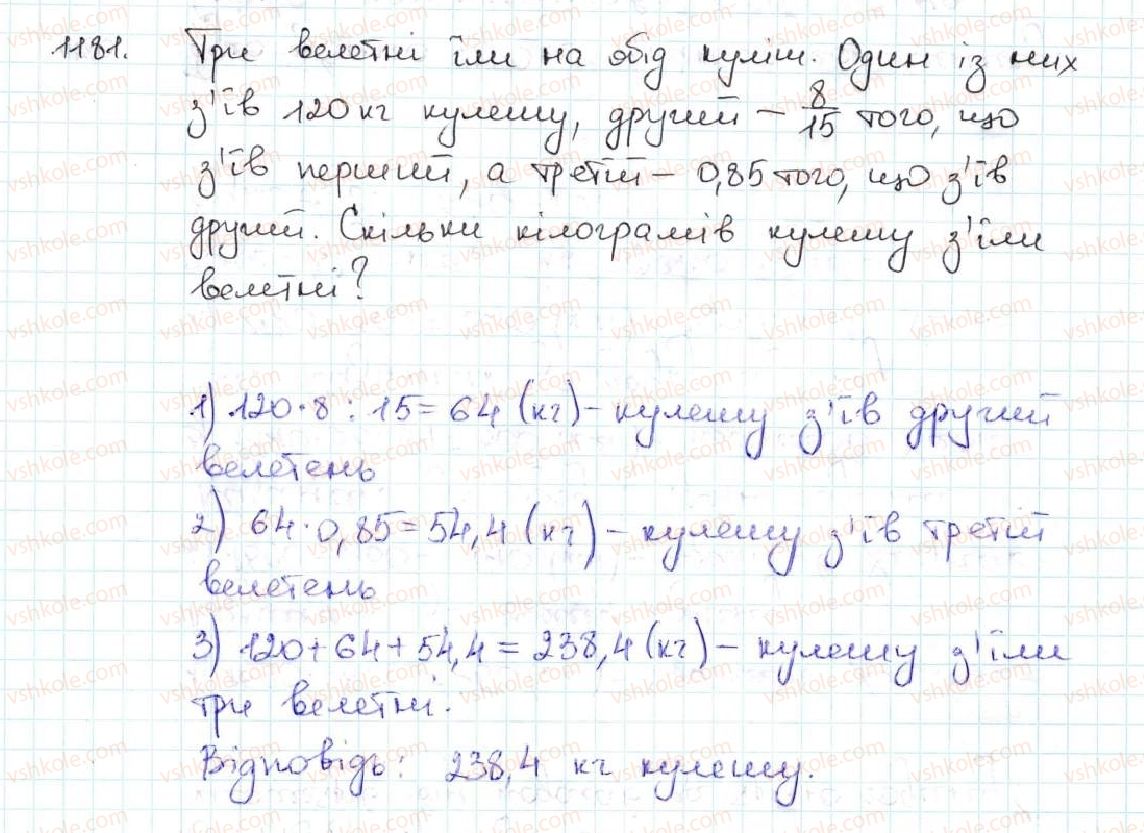 1181. Три велетні їли на обід куліш. Один із них
з'їв 120 кг кулешу, другий – 8/15 того, що
з'їв перший, а третій – 0,85 того, що з'їв
другий. Скільки кілограмів кулешу з'їли
велетні?
1) 120·8:15=64 (кг) – кулешу з'їв другий
велетень
2) 64·0,85=54,4 (кг) – кулешу з'їв третій
велетень
3) 120+64+54,4=238,4 (кг) – кулешу з'їли
три велетні.
Відповідь: 238,4 кг кулешу.